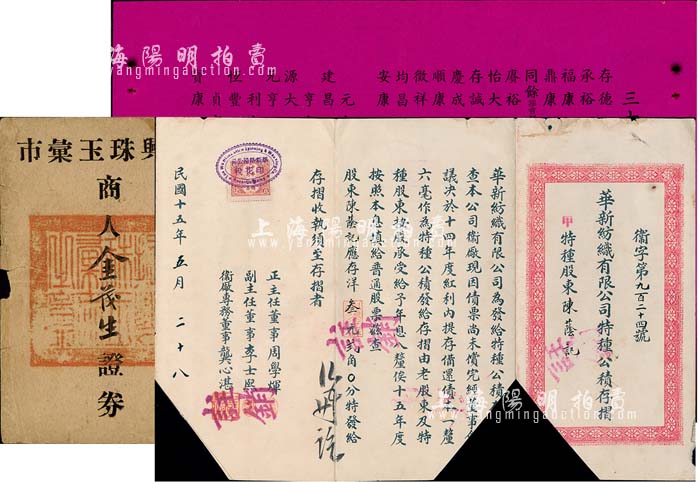 三
存德
承裕
福康
鼎康
同餘
賡裕
怡大
存誠
慶成
順康
徵祥
均昌
安康
元
建昌
亨
源大
元亨
利
恆豐
貞
康
興珠玉彙市
商人金茂生證券
衞字第九百二十四號
華新紡織有限公司特種公積存摺
甲 特種股東陳蔭記
華新紡織有限公司為發給特種公積
查本公司衞廠現因債票尚未償完經董事
議决於十四年度紅利內提存備還債票一釐
六毫作為特種公積發給存摺由老股東及特
種股東按股承受給予年息八釐俟十五年度
按照本息填給普通股票茲查
股東陳蔭記應存洋叁元弍角0分特發給
存摺收執須至存摺者
正主任董事周學煇
副主任董事李士熙
衞廠專務董事龔心湛
民國十五年五月二十八
註銷
上海陽明拍賣
www.yangmingauction.com